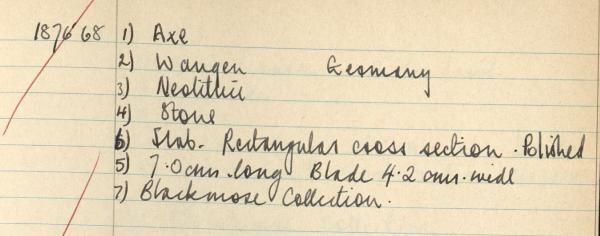 1876'68 1) Axe
2) Wangen Germany
3) Neolithic
4) Stone
6) Slab. Rectangular cross section. Polished
5) 7.0 cms. long Blade 4.2 cms. wide
7) Blackmore Collection.